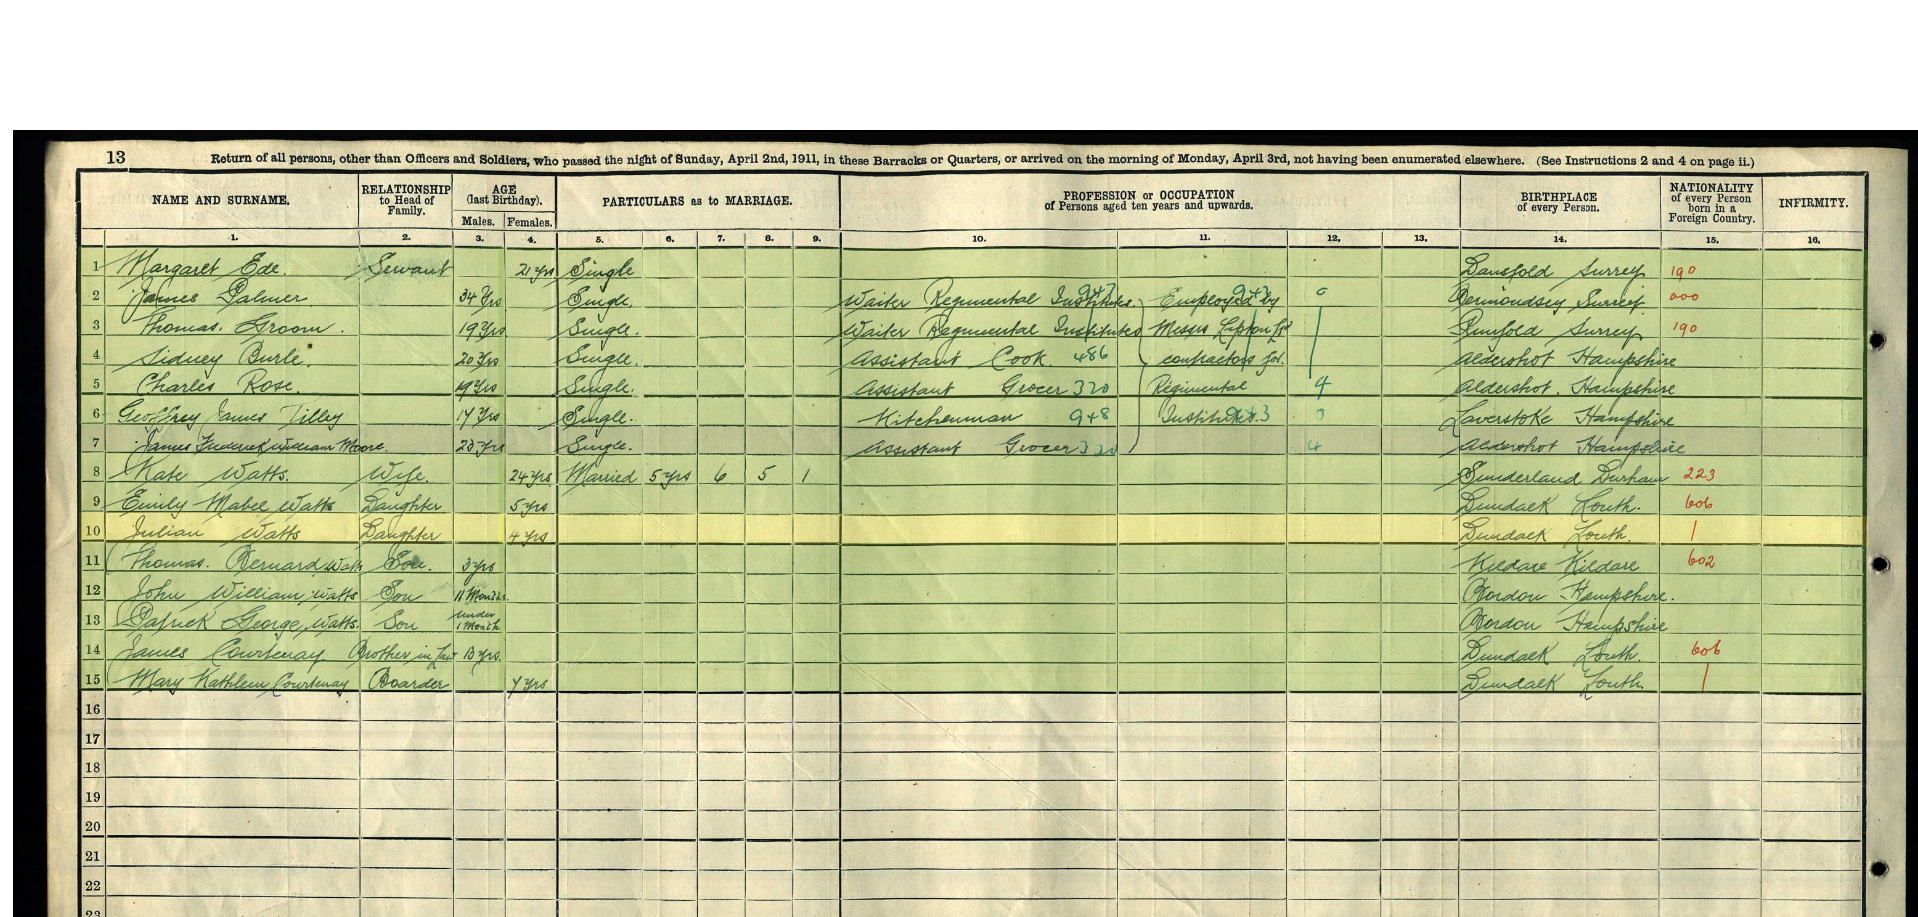 13 Return of all persons, other than Officers and Soldiers, who passed the night of Sunday, April 2nd, 1911, in these Barracks or Quarters, or arrived on the morning of Monday, April 3rd, not having been enumerated elsewhere. (See Instructions 2 and 4 on page ii.)
NAME AND SURNAME. RELATIONSHIP to Head of Family. AGE (last Birthday). Males. Females. PARTICULARS as to MARRIAGE. PROFESSION or OCCUPATION of Persons aged ten years and upwards. BIRTHPLACE of every Person. NATIONALITY of every Person born in a Foreign Country. INFIRMITY.
1. 2. 3. 4. 5. 6. 7. 8. 9. 10. 11. 12. 13. 14. 15. 16.
1 Margaret Ede. Servant 21 yrs Single Surrey 190
2 James Palmer 34 Yrs Single. Waiter Regimental Institutes. 943 Employed by 943 0 Bermondsey Surrey. 000
3 Thomas. Groom. 19 Yrs Single. Waiter Regimental Institutes Messrs Lipton Ltd Runfold Surrey 190
4 Sidney Burle. 20 Yrs Single. Assistant Cook 486 contractors for. Aldershot Hampshire
5 Charles Rose. 19 Yrs Single. Assistant Grocer 320 Regimental 4 Aldershot. Hampshire
6 Geoffrey James Tilley 17 Yrs Single. Kitchenman 948 Institutes. 943 0 Laverstoke Hampshire
7 James Frederick William Moore. 23 Yrs Single. Assistant Grocer 320 4 Aldershot Hampshire
8 Kate Watts. Wife. 24 yrs Married 5 yrs 6 5 1 Sunderland Durham 223
9 Emily Mabel Watts Daughter 5 yrs Dundalk Louth. 606
10 Julian Watts Daughter 4 yrs Dundalk Louth.
11 Thomas. Bernard Watts Son. 3 yrs Kildare Kildare 602
12 John William, Watts Son 11 Months. Bordon Hampshire.
13 Patrick George, Watts. Son under 1 Month Bordon Hampshire
14 James Courtenay Brother in Law 13 yrs. Dundalk Louth. 606
15 Mary Kathleen Courtenay Boarder 7 yrs Dundalk Louth.
16
17
18
19
20
21
22
23